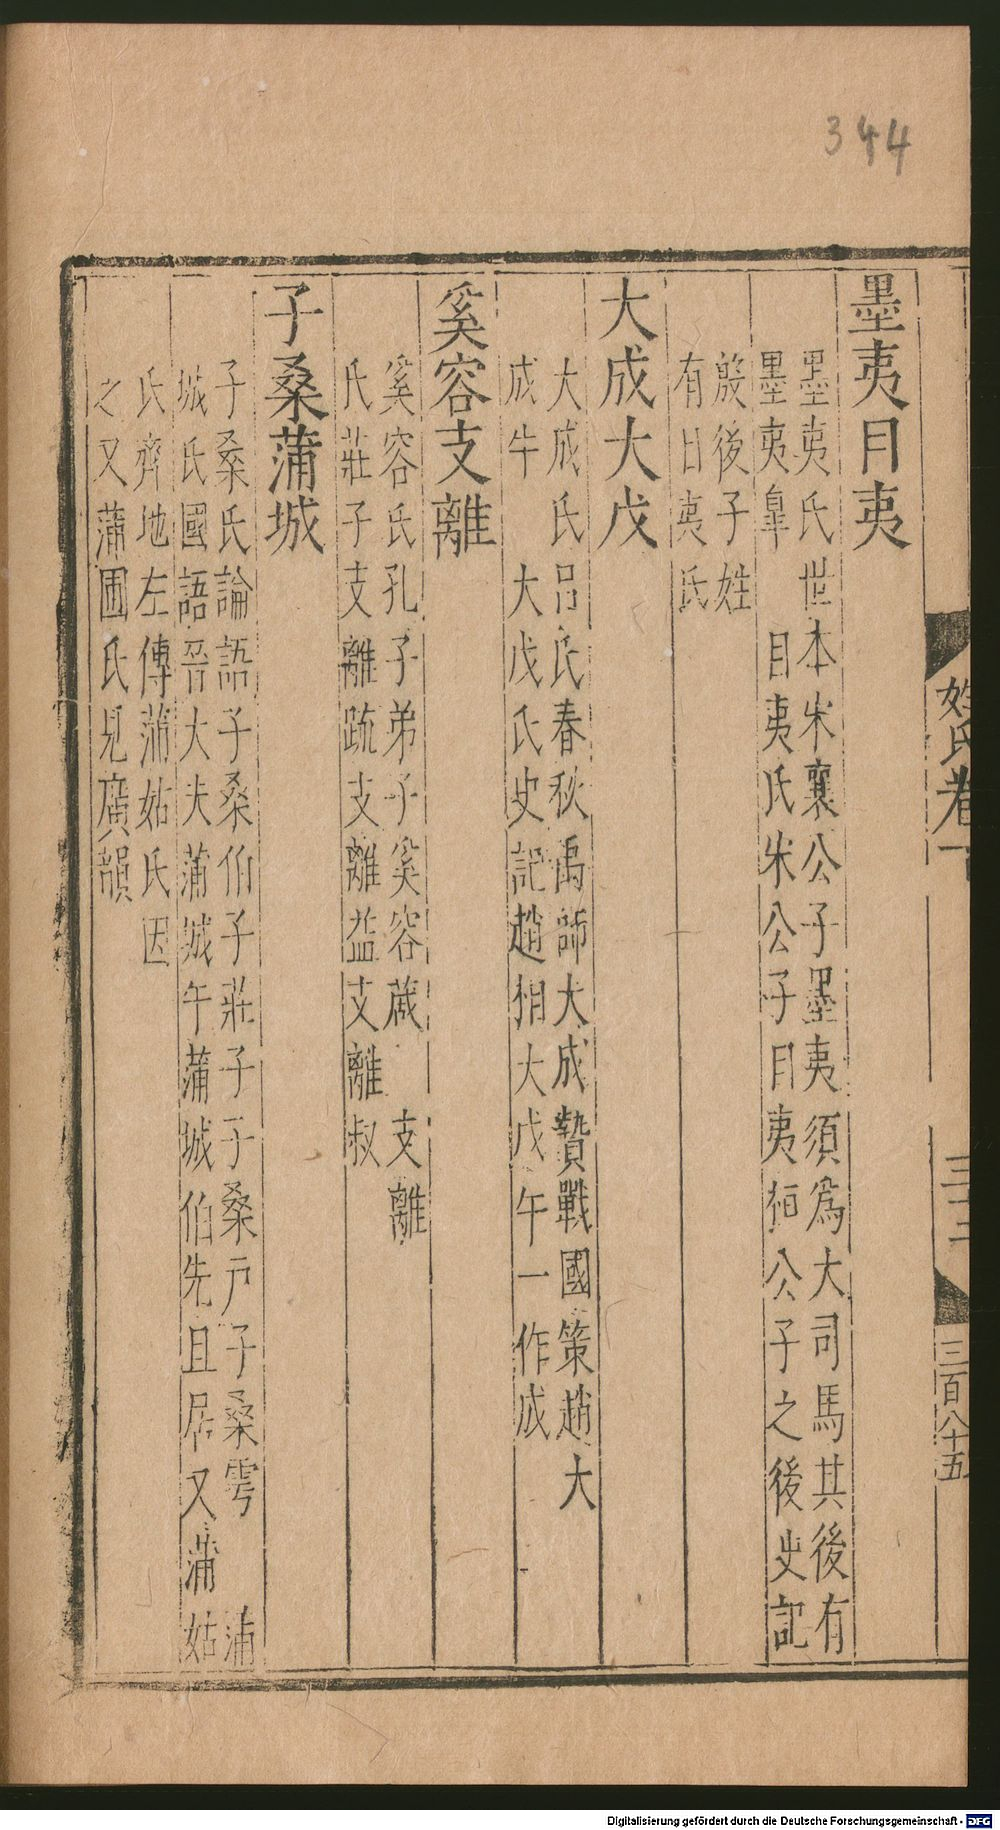 344
墨夷目夷
墨夷氏世本宋襄公子墨夷須爲大司馬其後有
墨夷皐　目夷氏宋公子目夷桓公子之後史記
殷後子姓
有目夷氏
大成大戊
大成氏呂氏春秋禹師大成贄戰國策趙大
成牛　大戊氏史記趙相大戊午一作成
奚容支離
奚容氏孔子弟子奚容蒧　支離
氏莊子支離疏支離益支離叔
子桑蒲城
子桑氏論語子桑伯子莊子子桑户子桑雩　蒲
城氏國語晉大夫蒲城午蒲城伯先且居又蒲姑
氏齊地左傳蒲姑氏因
之又蒲圃氏見廣韻
姓氏卷下
三十二
三百八十五
Digitalisierung gefördert durch die Deutsche Forschungsgemeinschaft - DFG